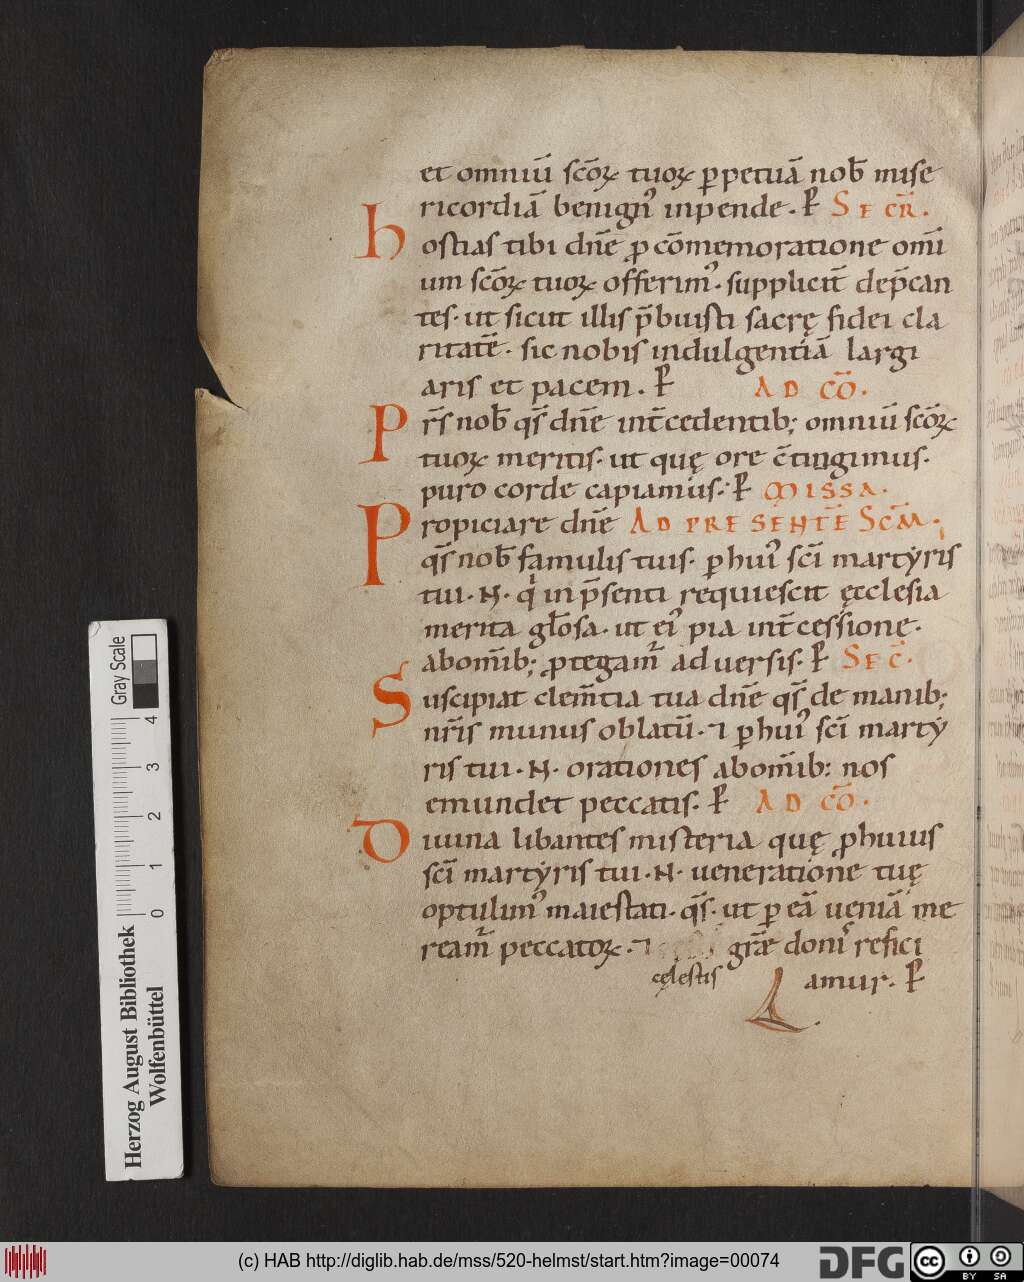 et omniũ scõꝝ tuoꝝ ꝑpetuã nob̃ mise
ricordiã benignꝰ inpende. P̃ SECR̃.
hostias tibi dñe ꝓ cõmemoratione om̃i
um scõꝝ tuoꝝ offerimꝰ. supplicit̃ dep̃can
tes. ut sicut illis p̃buisti sacrę fidei cla
ritatẽ. sic nobis indulgentiã largi
aris et pacem. P̃ AD CÕ.
Pr̃s nob̃ qs̃ dñe int̃cedentib; omniũ scõꝝ
tuoꝝ meritis. ut quę ore c̃tingimus.
puro corde capiamus. P̃ MISSA.
Propiciare dñe AD PRESENTẼ SCM̃.
qs̃ nob̃ famulis tuis. ꝑ huiꝰ sc̃i martyris
tui. N. qͥ in p̃senti requiescit ęcclesia
merita gl̃osa. ut eiꝰ pia int̃cessione.
abom̃ib; ꝓtegam̃ adversis. P̃ SEC̃.
Suscipiat clem̃tia tua dñe qs̃ de manib;
nr̃is munus oblatũ. ⁊ ꝑ huiꝰ sc̃i marty
ris tui. N. orationes abom̃ib: nos
emundet peccatis. P̃ AD CÕ.
Divina libantes misteria quę ꝓ huius
sc̃i martyris tui. N. veneratione tuę
optulimꝰ maiestati. qs̃. ut ꝑ eã veniã me
ream̃ peccatoꝝ. ⁊ grãe donisͥ refici
cęlestis amur. P̃
Herzog August Bibliothek
Wolfenbüttel
0 1 2 3 4
Gray Scale
(c) HAB http://diglib.hab.de/mss/520-helmst/start.htm?image=00074
DFG
cc BY SA